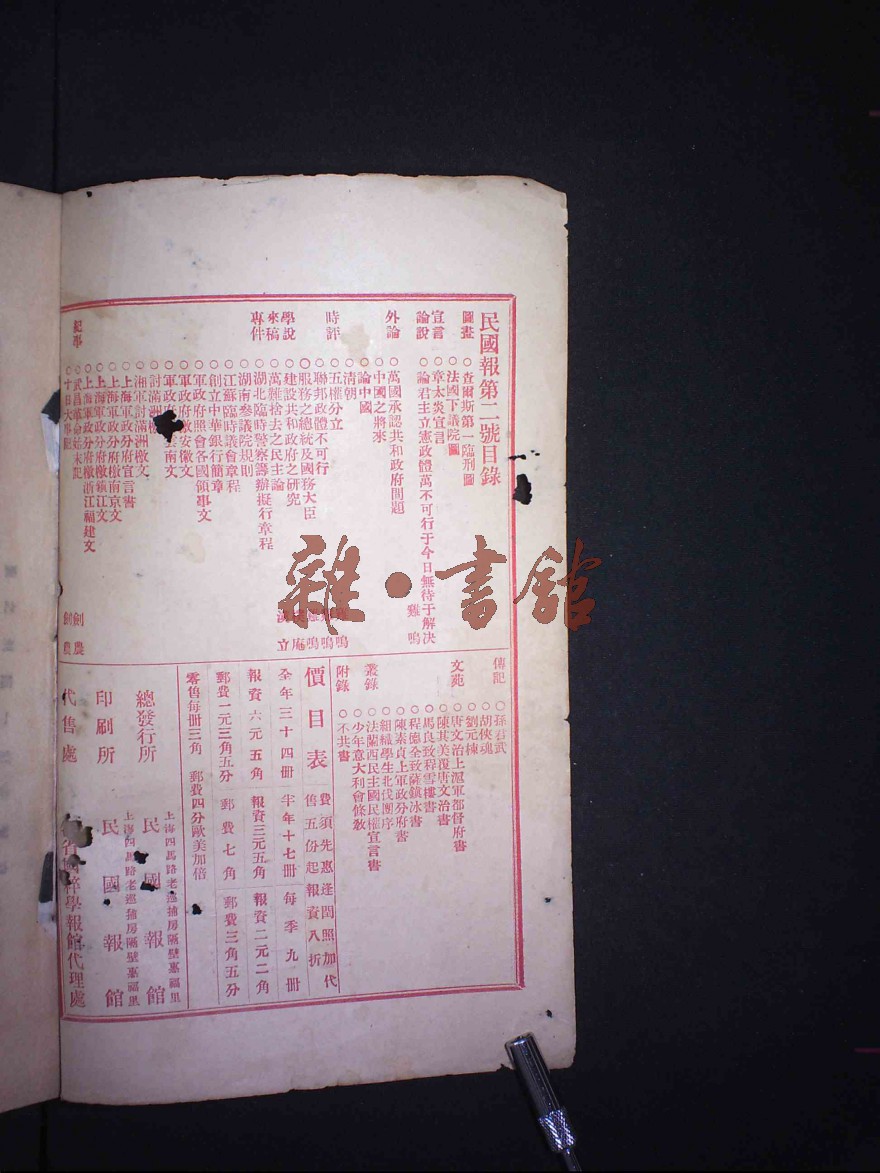 民國報第二號目錄
圖畫
○查爾斯第一臨刑圖
○法國下議院圖
宣言
○章太炎宣言
論說
○論君主立憲政體萬不可行于今日無待于解決 雞鳴
外論
○萬國承認共和政府問題
○中國之將來
○論中國
時評
○清朝 鳴
○五權分立 鳴
○聯邦政體不可行 鳴
○服務之總統及國務大臣 庵
學說
○建設共和政府之研究 立
來稿
○萬難捨去之民主論
專件
○湖北臨時警察籌辦擬行章程
○湖南參議院規則
○江蘇臨時議會章程
○創立中華銀行簡章
○軍政府照會各國領事文
○軍政府檄安徽文
○軍政府 雲南文
○討滿洲檄
○湘軍討滿洲檄文
○上海軍政分府宣言書
○上海軍政分府檄南京文
○上海軍政分府檄鎮江文
○上海軍政分府檄浙江福建文
紀事
○武昌革命始末記 劍農
○十日大事記 劍農
傳記
○孫君武
○胡俠魂
○劉元棟
文苑
○唐文治上滬軍都督府書
○陳其美復唐文治書
○馬良致程雪樓書
○程德全致薩鎮冰書
○陳素貞上軍政分府書
○組織學生北伐團序
叢錄
○法蘭西民主國民權宣言書
○少年意大利會條教
附錄
○不共書
價目表
費須先惠逢閏照加代
售五份起報資八折
全年三十四冊 半年十七冊 每季九冊
報資六元五角 報資三元五角 報資二元二角
郵費一元三角五分 郵費七角 郵費三角五分
零售每冊三角 郵費四分歐美加倍
總發行所
上海四馬路老巡捕房隔壁惠福里
民國報館
印刷所
上海四馬路老巡捕房隔壁惠福里
民國報館
代售處
省國粹學報館代理處
雜·書館